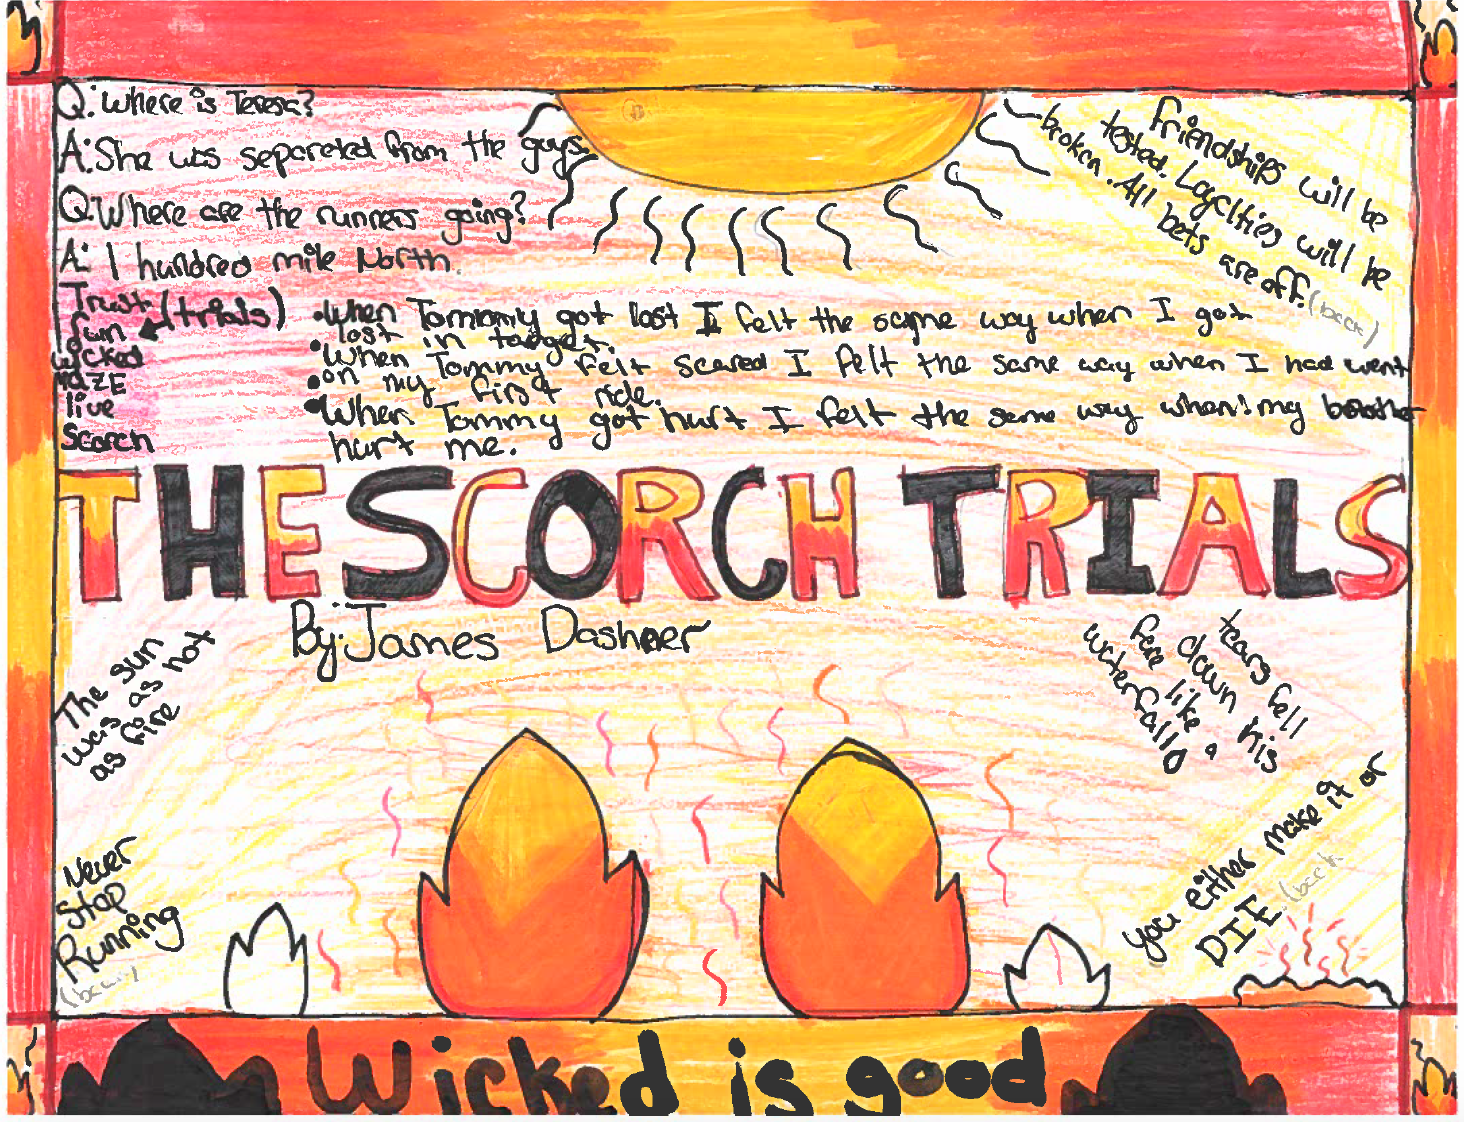 Q: Where is Teresa?
A: She was separeted from the guys.
Q: Where are the runners going?
A: 1 hundred mile North.
Trust
(trials)
run
wicked
MAZE
live
Scorch
•When Tommmy got lost I felt the same way when I got
lost in target.
•When Tommy felt scared I felt the same way when I had went
on my first ride.
•When Tommy got hurt I felt the same way when my brother
hurt me.
friendships will be
tested. Loyalties will be
broken. All bets are off.
(back)
THE SCORCH TRIALS
By: James Dashner
The sun
was as hot
as fire
tears fell
down his
face like a
waterfall
Never
Stop
Running
(back)
you either make it or
DIE. (back
Wicked is good